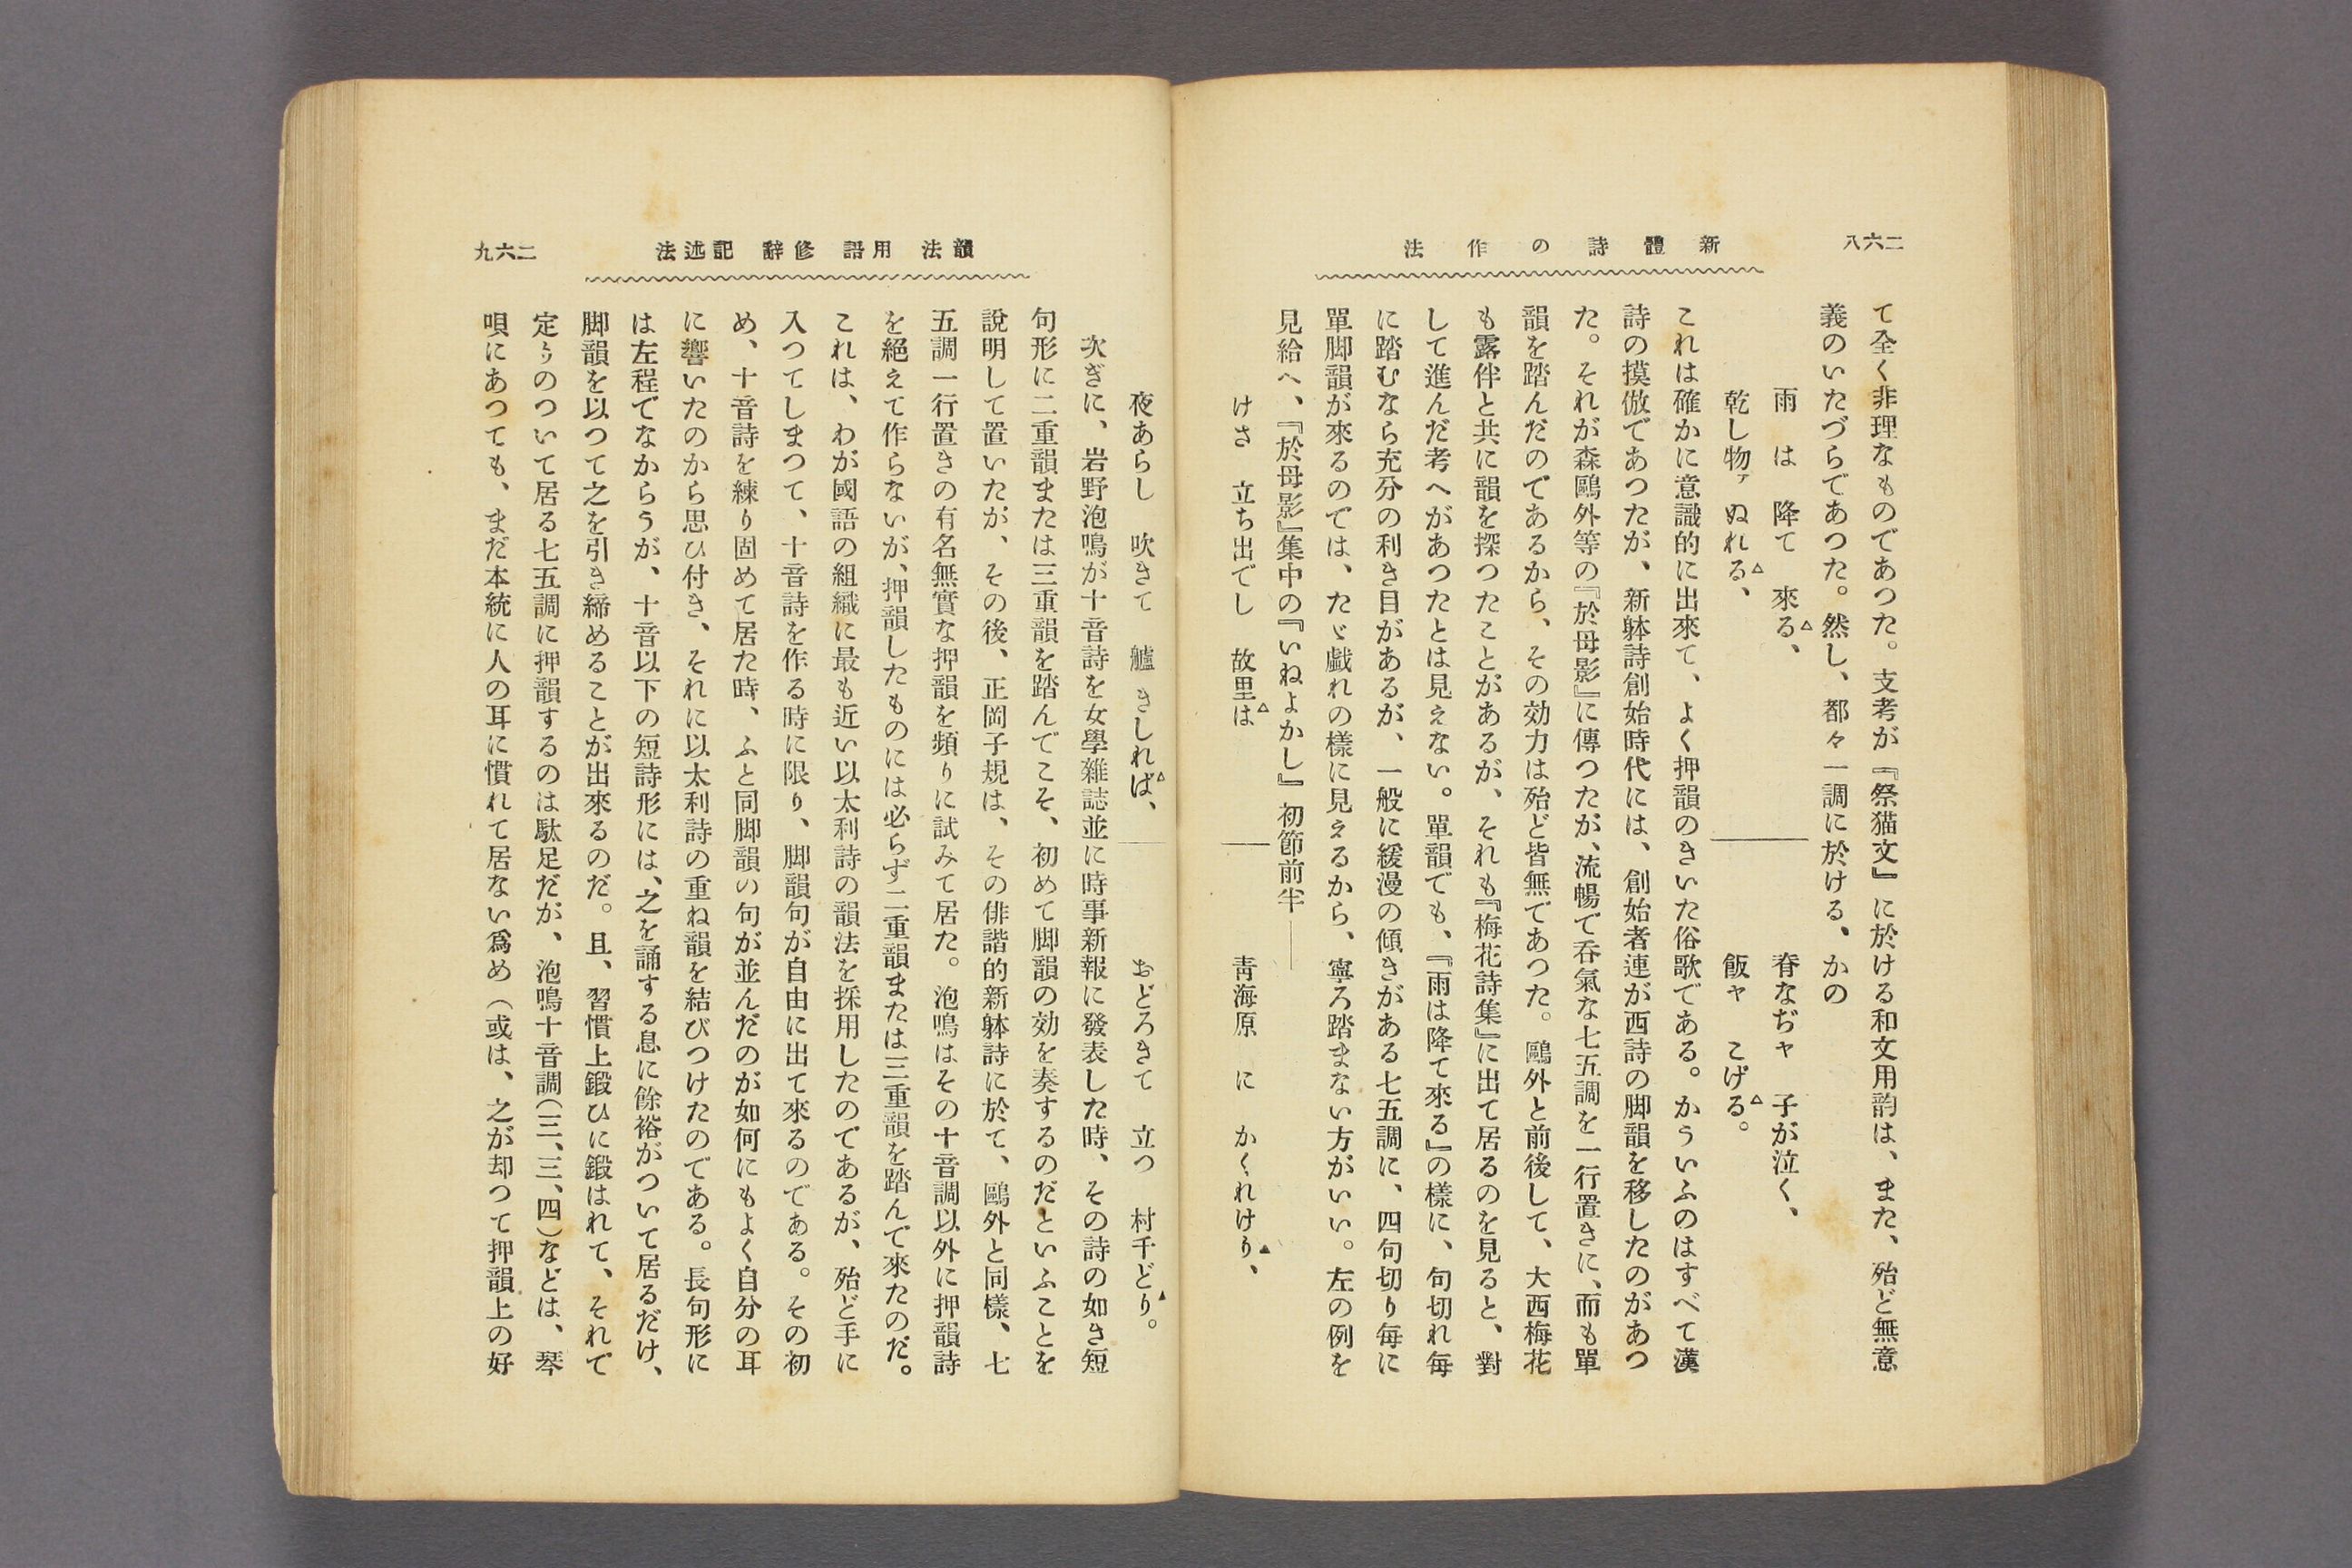 二六八
新體詩の作法
て全く非理なものであつた。支考が『祭猫文』に於ける和文用韵は、また、殆ど無意
義のいたづらであつた。然し、都々一調に於ける、かの
雨は降て來る、 脊なぢャ子が泣く、
乾し物ァぬれる、 飯ャこげる。
これは確かに意識的に出來て、よく押韻のきいた俗歌である。かういふのはすべて漢
詩の摸倣であつたが、新躰詩創始時代には、創始者連が西詩の脚韻を移したのがあつ
た。それが森鷗外等の『於母影』に傳つたが、流暢で呑氣な七五調を一行置きに、而も單
韻を踏んだのであるから、その効力は殆ど皆無であつた。鷗外と前後して、大西梅花
も露伴と共に韻を探つたことがあるが、それも『梅花詩集』に出て居るのを見ると、對
して進んだ考へがあつたとは見えない。單韻でも、『雨は降て來る』の樣に、句切れ毎
に踏むなら充分の利き目があるが、一般に緩漫の傾きがある七五調に、四句切り毎に
單脚韻が來るのでは、たゞ戯れの樣に見えるから、寧ろ踏まない方がいい。左の例を
見給へ、『於母影』集中の『いねよかし』初節前半――
けさ 立ち出でし 故里は 靑海原 に かくれけり、
二六九
韻法 用語 修辭 記述法
夜あらし 吹きて 艫きしれば、 おどろきて 立つ 村千どり。
次ぎに、岩野泡鳴が十音詩を女學雜誌並に時事新報に發表した時、その詩の如き短
句形に二重韻または三重韻を踏んでこそ、初めて脚韻の効を奏するのだといふことを
說明して置いたが、その後、正岡子規は、その俳諧的新躰詩に於て、鷗外と同樣、七
五調一行置きの有名無實な押韻を頻りに試みて居た。泡鳴はその十音調以外に押韻詩
を絕えて作らないが、押韻したものには必らず二重韻または三重韻を踏んで來たのだ。
これは、わが國語の組織に最も近い以太利詩の韻法を採用したのであるが、殆ど手に
入つてしまつて、十音詩を作る時に限り、脚韻句が自由に出て來るのである。その初
め、十音詩を練り固めて居た時、ふと同脚韻の句が並んだのが如何にもよく自分の耳
に響いたのから思ひ付き、それに以太利詩の重ね韻を結びつけたのである。長句形に
は左程でなからうが、十音以下の短詩形には、之を誦する息に餘裕がついて居るだけ、
脚韻を以つて之を引き締めることが出來るのだ。且、習慣上鍛ひに鍛はれて、それで
定りのついて居る七五調に押韻するのは駄足だが、泡鳴十音調(三、三、四)などは、琴
唄にあつても、まだ本統に人の耳に慣れて居ない爲め(或は、之が却つて押韻上の好